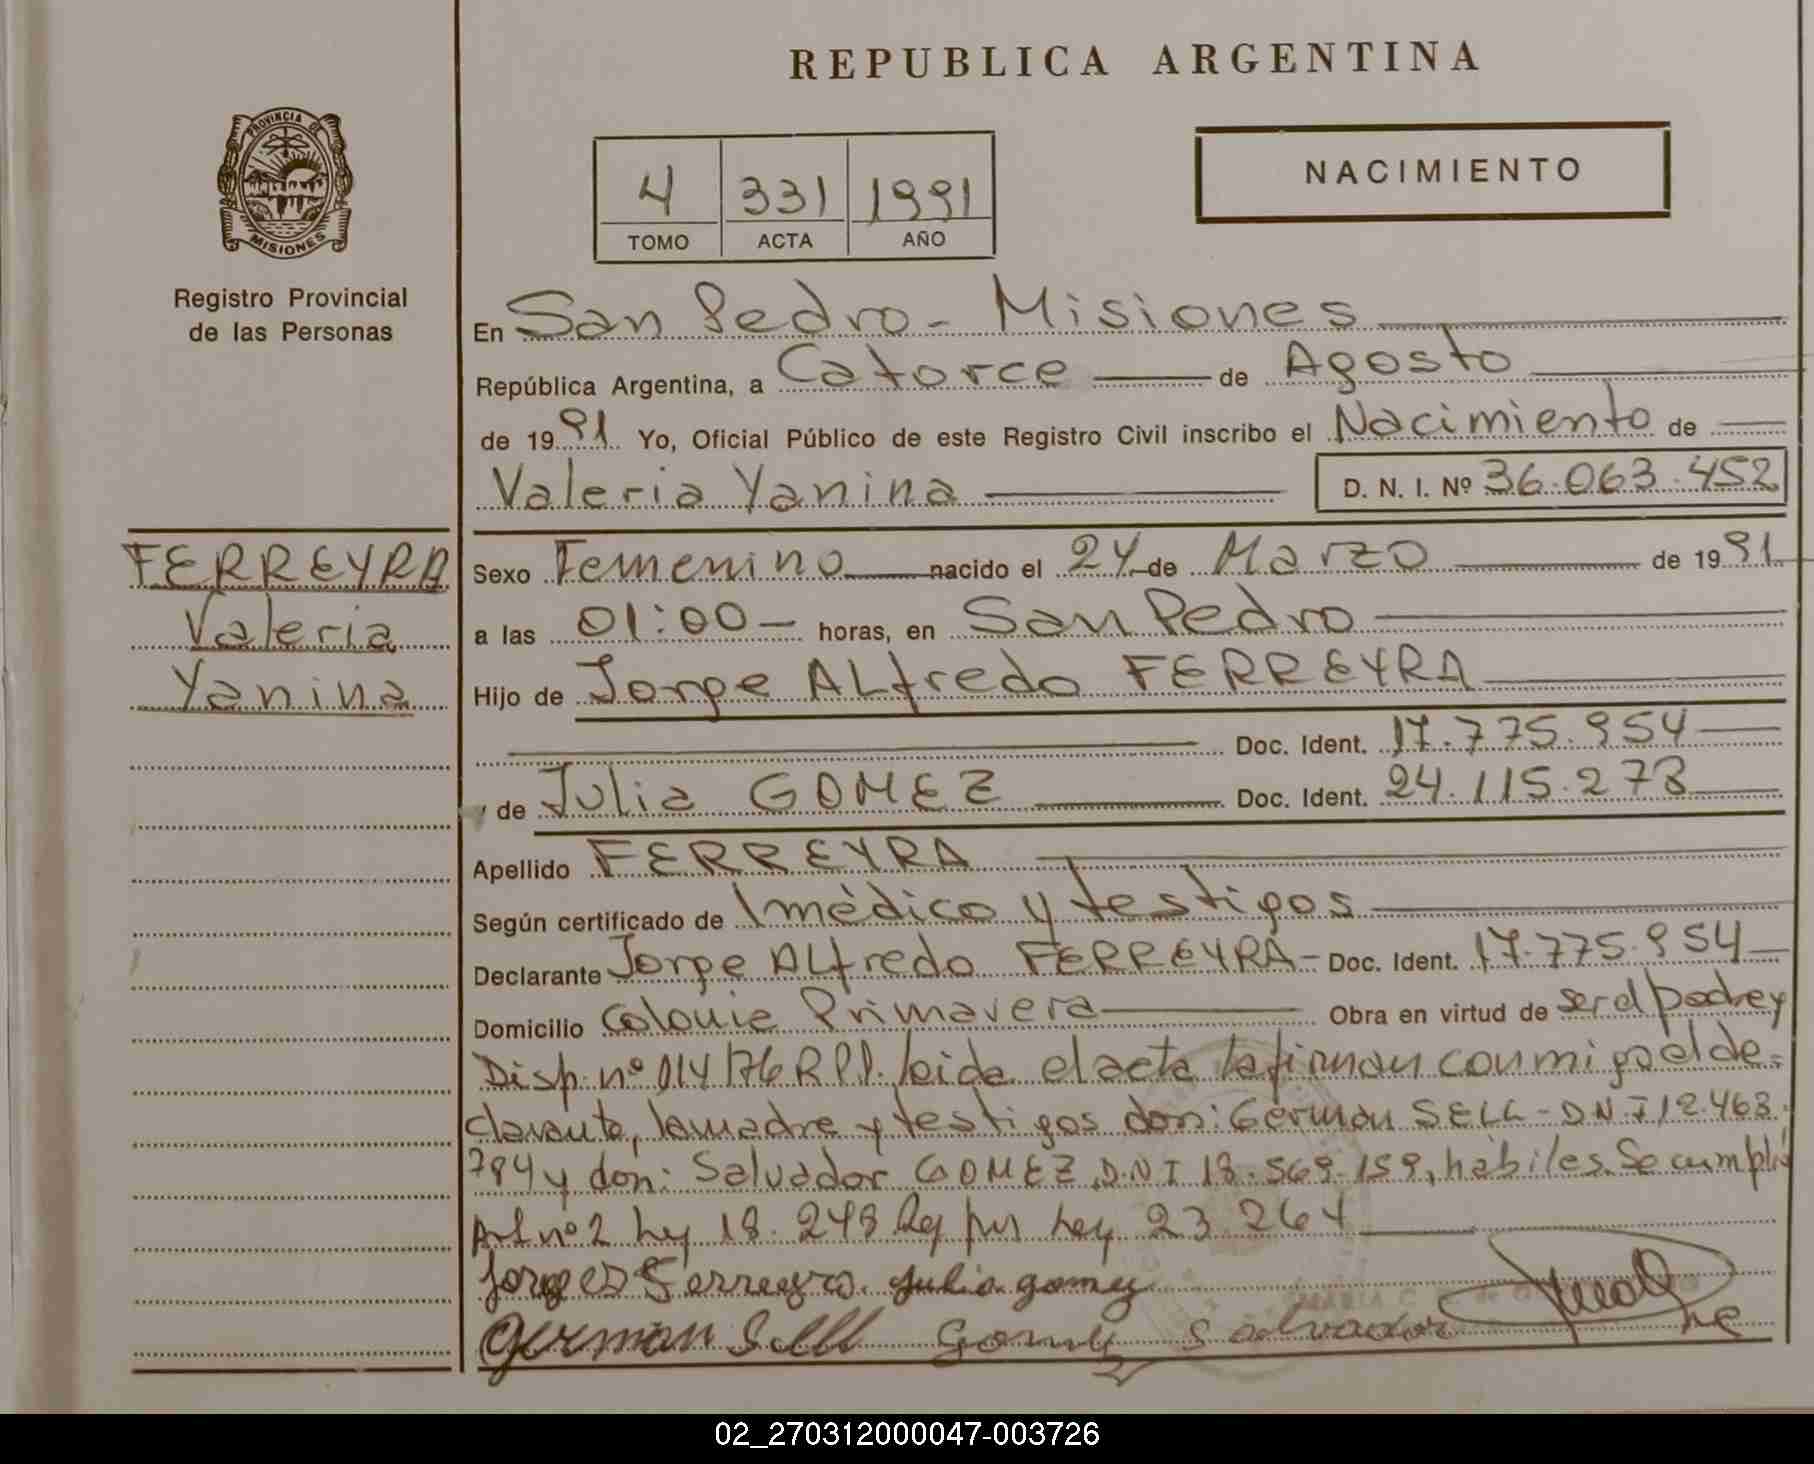 REPUBLICA ARGENTINA
PROVINCIA DE
MISIONES
Registro Provincial
de las Personas
4 331 1991
TOMO ACTA AÑO
NACIMIENTO
En San Pedro - Misiones
República Argentina, a Catorce de Agosto
de 1991 Yo, Oficial Público de este Registro Civil inscribo el Nacimiento de
Valeria Yanina D. N. I. Nº 36.063.452
FERREYRA
Valeria
Yanina
Sexo Femenino nacido el 24 de Marzo de 1991
a las 01:00 horas, en San Pedro
Hijo de Jorge ALfredo FERREYRA
Doc. Ident. 17.775.954
y de Julia GOMEZ Doc. Ident. 24.115.273
Apellido FERREYRA
Según certificado de 1 médico y testigos
Declarante Jorge ALfredo FERREYRA - Doc. Ident. 17.775.954
Domicilio Colonia Primavera Obra en virtud de ser el padre y
Disp. nº 014/76 R.P.P. leida el acta la firman conmigo el de=
clarante, la madre y testigos don: German SELL - D.N.I 12.468.
794 y don: Salvador GOMEZ D.N.I 18.569.159, habiles. Se cumplió
Art nº 2 Ley 18.248 por Ley 23.264
Jorge Ferreyra. Julia gomez
German Sell Gomez Salvador
02_270312000047-003726